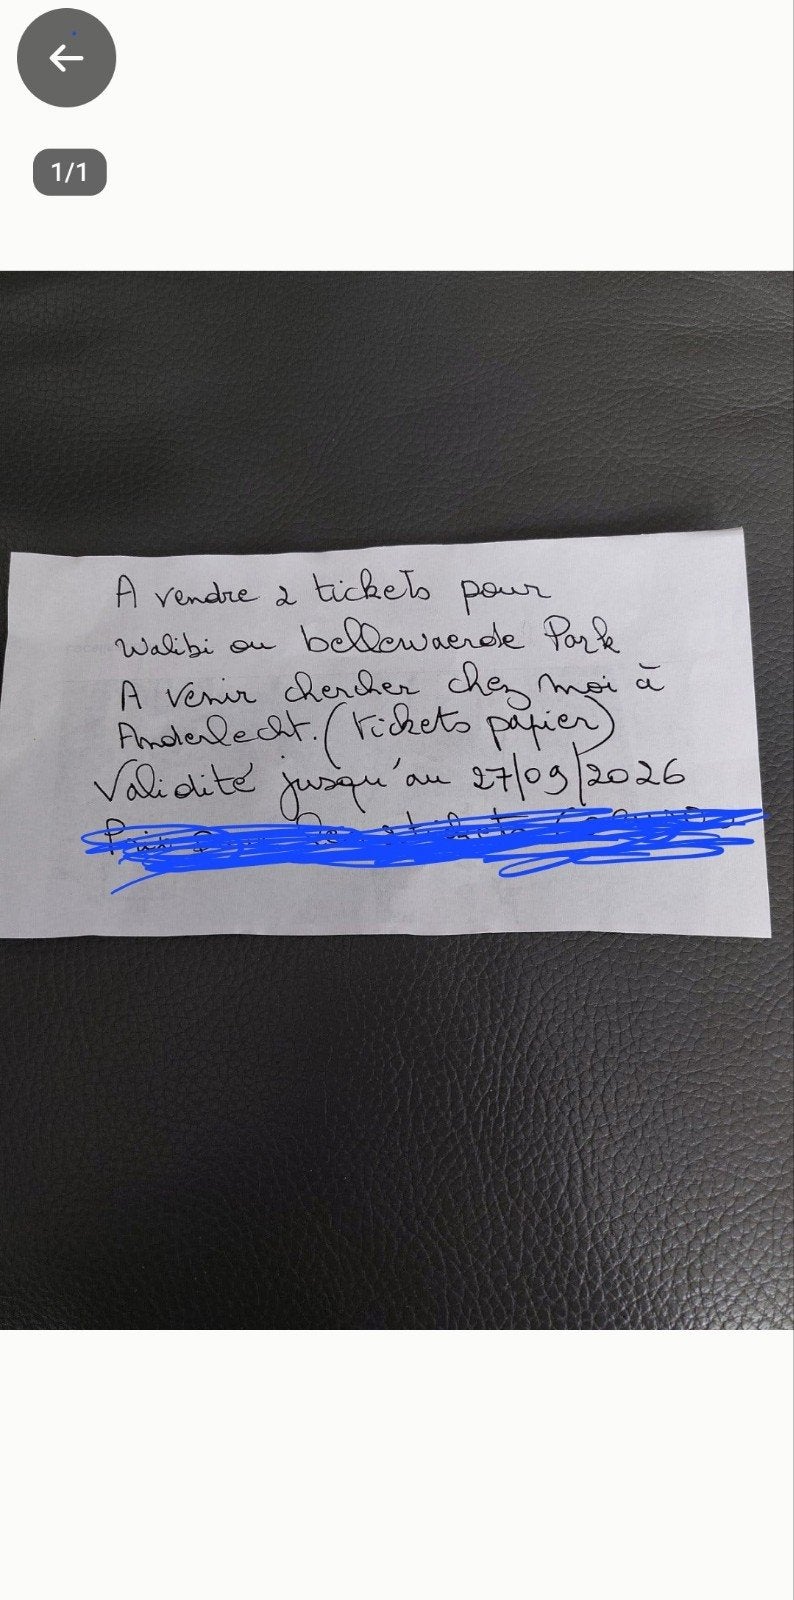 1/1
A vendre 2 tickets pour
Walibi ou bellewaerde Park
A venir chercher chez moi à
Anderlecht. (tickets papier)
Validité jusqu'au 27/09/2026